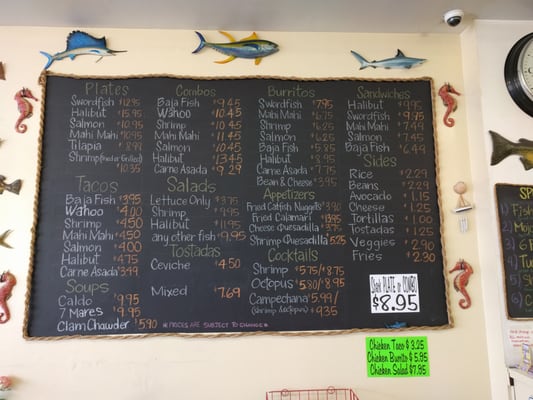 Plates
Swordfish $12.95
Halibut 15.95
Salmon 10.95
Mahi Mahi 10.95
Tilapia 8.99
Shrimp (Fried or Grilled)
10.35
Tacos
Baja Fish $3.95
Wahoo 4.00
Shrimp 4.50
Mahi Mahi 4.50
Salmon 4.00
Halibut 4.75
Carne Asada $3.99
Soups
Caldo 9.95
7 Mares 9.95
Clam Chowder 5.90
Combos
Baja Fish 9.45
Wahoo 10.45
Shrimp 10.45
Mahi Mahi 11.45
Salmon 10.45
Halibut 13.45
Carne Asada 9.29
Salads
Lettuce Only $3.75
Shrimp $9.95
Halibut 11.95
any other fish $9.95
Tostadas
Ceviche 4.50
Mixed 7.69
*PRICES ARE SUBJECT TO CHANGE*
Burritos
Swordfish $7.95
Mahi Mahi 6.75
Shrimp 6.25
Salmon 6.25
Baja Fish 5.85
Halibut 8.95
Carne Asada 7.75
Bean & Cheese $3.95
Appetizers
Fried Catfish Nuggets $3.90
Fried Calamari 13.95
Cheese Quesadilla 3.75
Shrimp Quesadilla 5.25
Cocktails
Shrimp $5.75/$8.75
Octopus 5.80/8.95
Campechana 5.99/
(Shrimp & Octopus) 9.35
Sandwiches
Halibut $9.95
Swordfish $9.75
Mahi Mahi $7.49
Salmon $7.45
Baja Fish $6.49
Sides
Rice $2.29
Beans 2.29
Avocado 1.15
Cheese 1.25
Tortillas 1.00
Tostadas 1.25
Veggies 2.90
Fries 2.30
$8.95
Chicken Taco $3.25
Chicken Burrito $5.95
Chicken Salad $7.95